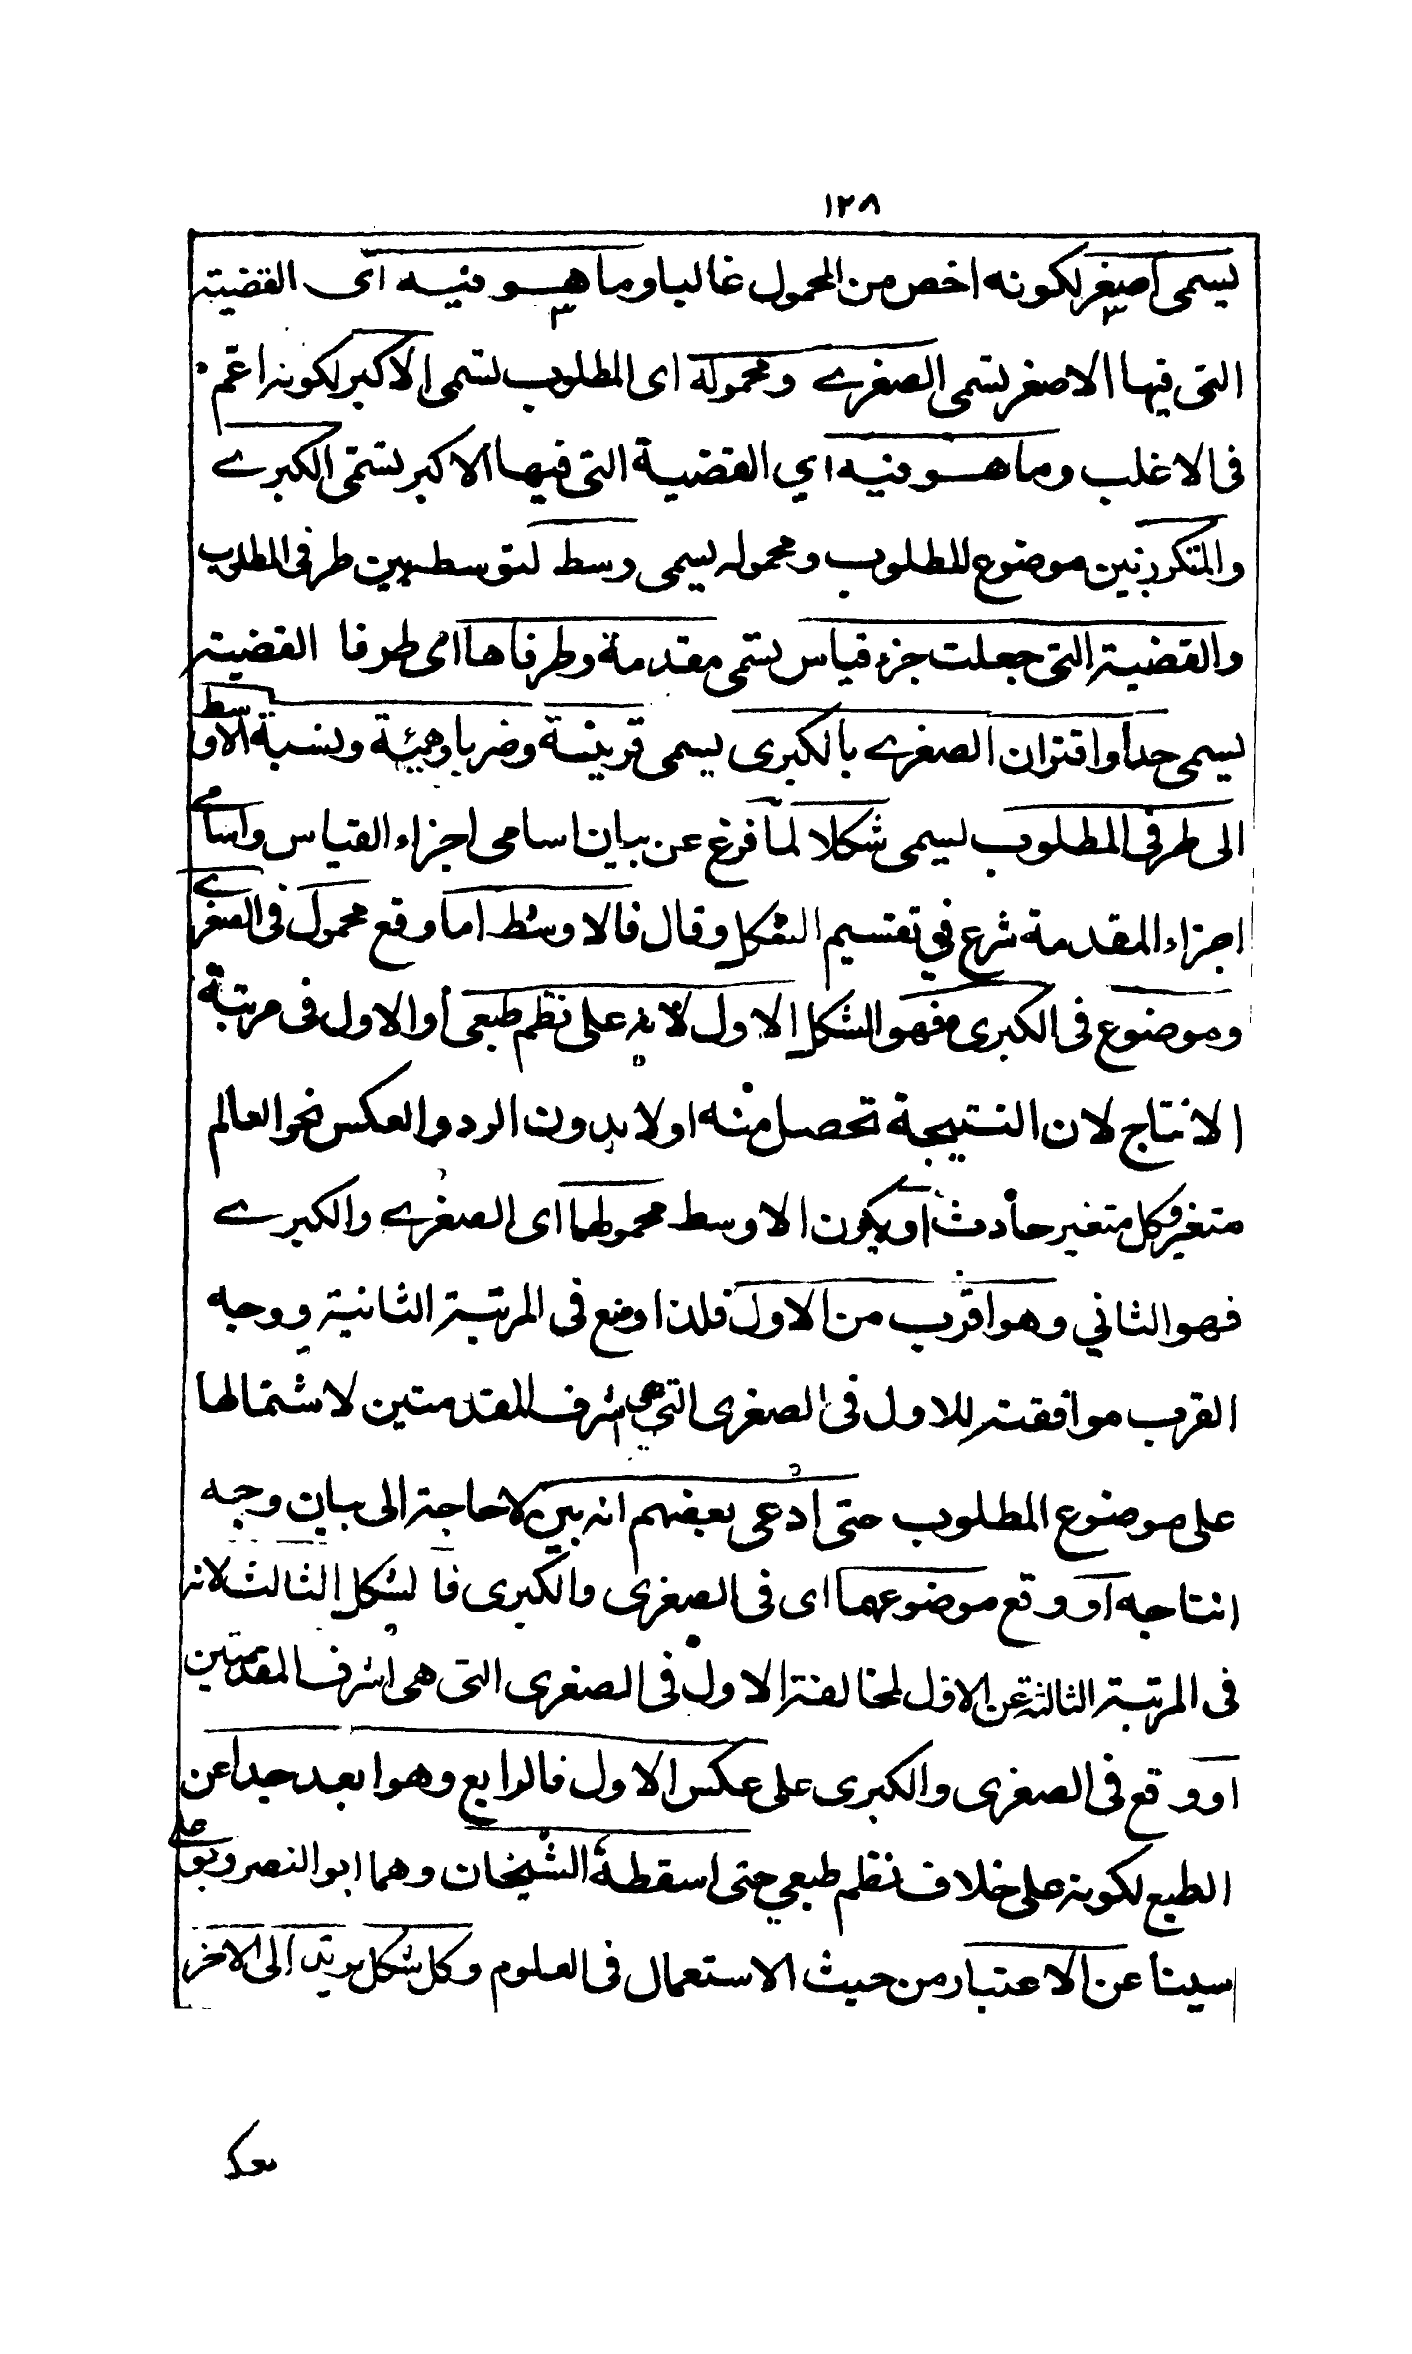 ١٢٨
يسمى اصغر لكونه اخص من المحمول غالبا وما هو فيه اى القضية
التى فيها الاصغر تسمى الصغرے ومحموله اى المطلوب تسمى الاكبر لكونه اعم
فى الاغلب وما هو فيه اي القضية التى فيها الاكبر تسمى الكبرے
والمتكرر بين موضوع المطلوب ومحموله يسمى وسط لتوسطه بين طرفى المطلوب
والقضية التى جعلت جزء قياس تسمى مقدمة وطرفاها اى طرفا القضية
يسمى حدا واقتران الصغرے بالكبرى يسمى قرينة وضربا وهيئة ونسبة الاوسط
الى طرفى المطلوب يسمى شكلا لما فرغ عن بيان اسامى اجزاء القياس واسامے
اجزاء المقدمة شرع في تقسيم الشكل وقال فالاوسط اما وقع محمول فى الصغرے
وموضوع فى الكبرى فهو الشكل الاول لانه على نظم طبعى أو الاول فى مرتبة
الانتاج لان النتيجة تحصل منه اولا بدون الرد والعكس نحو العالم
متغير وكل متغير حادث أو يكون الاوسط محمولهما اى الصغرے والكبرے
فهو الثاني وهو اقرب من الاول فلذا وضع فى المرتبة الثانية ووجه
القرب موافقته للاول فى الصغرى التى هى اشرف المقدمتين لاشتمالها
على موضوع المطلوب حتى ادعى بعضهم انه بين لاحاجة الى بيان وجه
انتاجه أو وقع موضوعهما اى فى الصغرى والكبرى فالشكل الثالث لانه
فى المرتبة الثالثة عن الاول لمخالفته الاول فى الصغرى التى هى اشرف المقدمتين
او وقع فى الصغرى والكبرى على عكس الاول فالرابع وهو ابعد جدا عن
الطبع لكونه على خلاف نظم طبعي حتى اسقطة الشيخان وهما ابو النصر وبوعلى
سينا عن الاعتبار من حيث الاستعمال فى العلوم وكل شكل يرتد الى الاخر
بعكـ